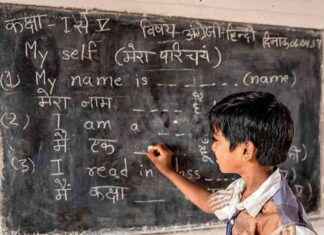 कक्षा - I से V विषय अंग्रेजी-हिन्दी दिनांक
My self (मेरा परिचय)
(1) My name is ---- (name)
मेरा नाम ----
(2) I am a ----
मैं एक ----
(3) I read in class ----
मैं कक्षा ----